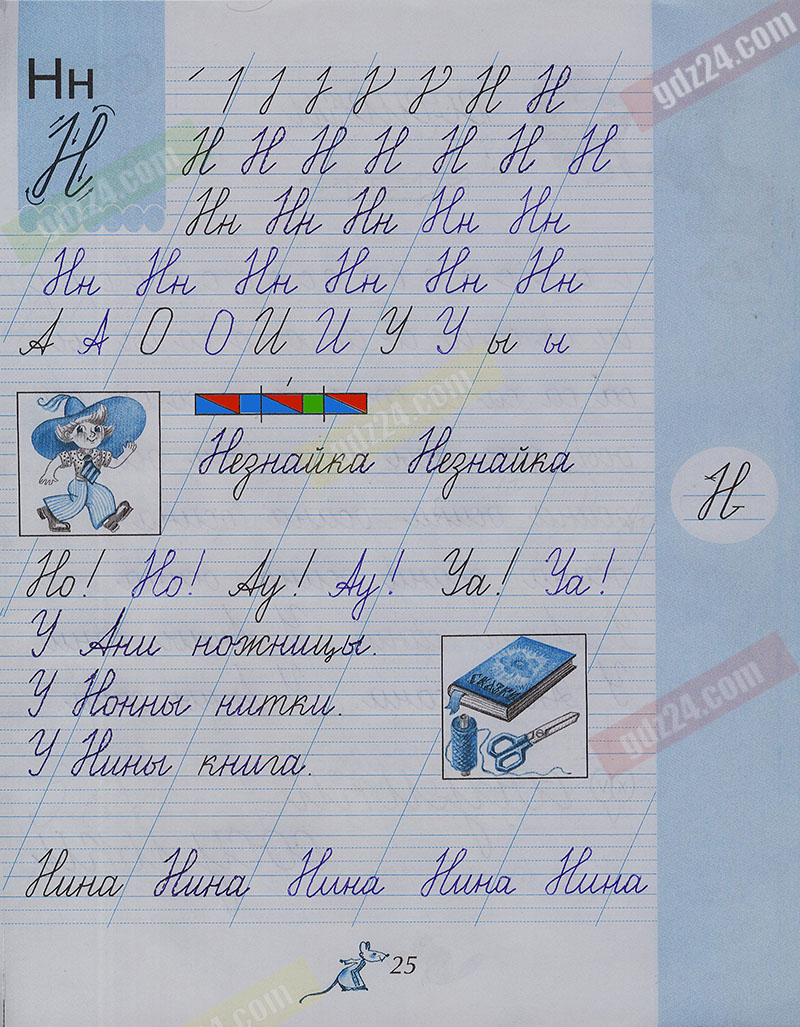 Нн
Н
Н Н
Н Н Н Н Н Н Н
Нн Нн Нн Нн Нн
Нн Нн Нн Нн Нн Нн
А А О О И И У У ы ы
Незнайка Незнайка
Н
Но! Но! Ау! Ау! Уа! Уа!
У Ани ножницы.
У Нонны нитки.
У Нины книга.
Сказки
Нина Нина Нина Нина Нина
25
gdz24.com
gdz24.com
gdz24.com
gdz24.com
gdz24.com